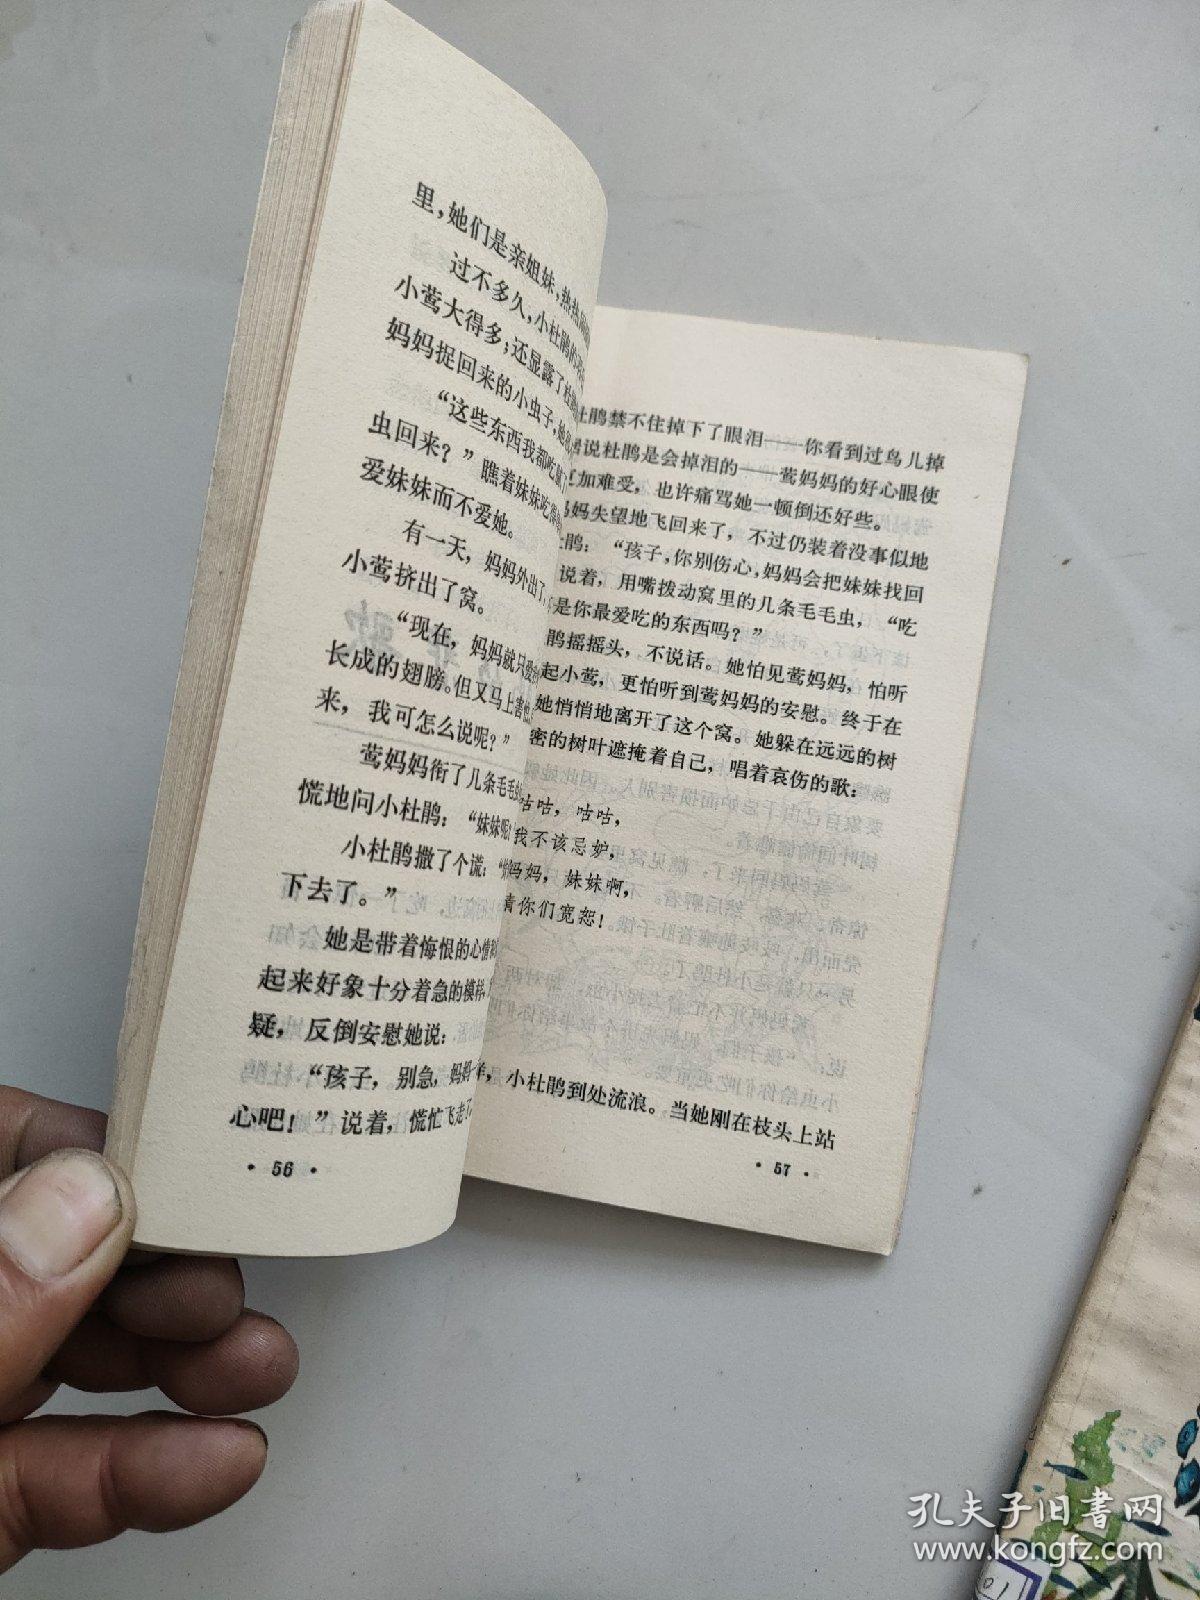 里，她们是亲姐妹，热热
过不多久，小杜鹃的
小莺大得多；还显露了杜
妈妈捉回来的小虫子，她
“这些东西我都吃
虫回来？”瞧着妹妹吃得
爱妹妹而不爱她。
有一天，妈妈外出了，
小莺挤出了窝。
“现在，妈妈就只爱
长成的翅膀。但又马上害
来，我可怎么说呢？”
莺妈妈衔了几条毛毛
慌地问小杜鹃：“妹妹呢
小杜鹃撒了个谎：“
下去了。”
她是带着悔恨的心情
起来好象十分着急的模样，
疑，反倒安慰她说：
“孩子，别急，妈妈
心吧！”说着，慌忙飞走了
·56·
杜鹃禁不住掉下了眼泪——你看到过鸟儿掉
说杜鹃是会掉泪的——莺妈妈的好心眼使
加难受，也许痛骂她一顿倒还好些。
妈妈失望地飞回来了，不过仍装着没事似地
鹃：“孩子，你别伤心，妈妈会把妹妹找回
说着，用嘴拨动窝里的几条毛毛虫，“吃
是你最爱吃的东西吗？”
鹃摇摇头，不说话。她怕见莺妈妈，怕听
起小莺，更怕听到莺妈妈的安慰。终于在
她悄悄地离开了这个窝。她躲在远远的树
密的树叶遮掩着自己，唱着哀伤的歌：
咕咕，咕咕，
我不该忌妒，
妈妈，妹妹啊，
请你们宽恕！
样，小杜鹃到处流浪。当她刚在枝头上站
·57·
孔夫子旧书网
www.kongfz.com